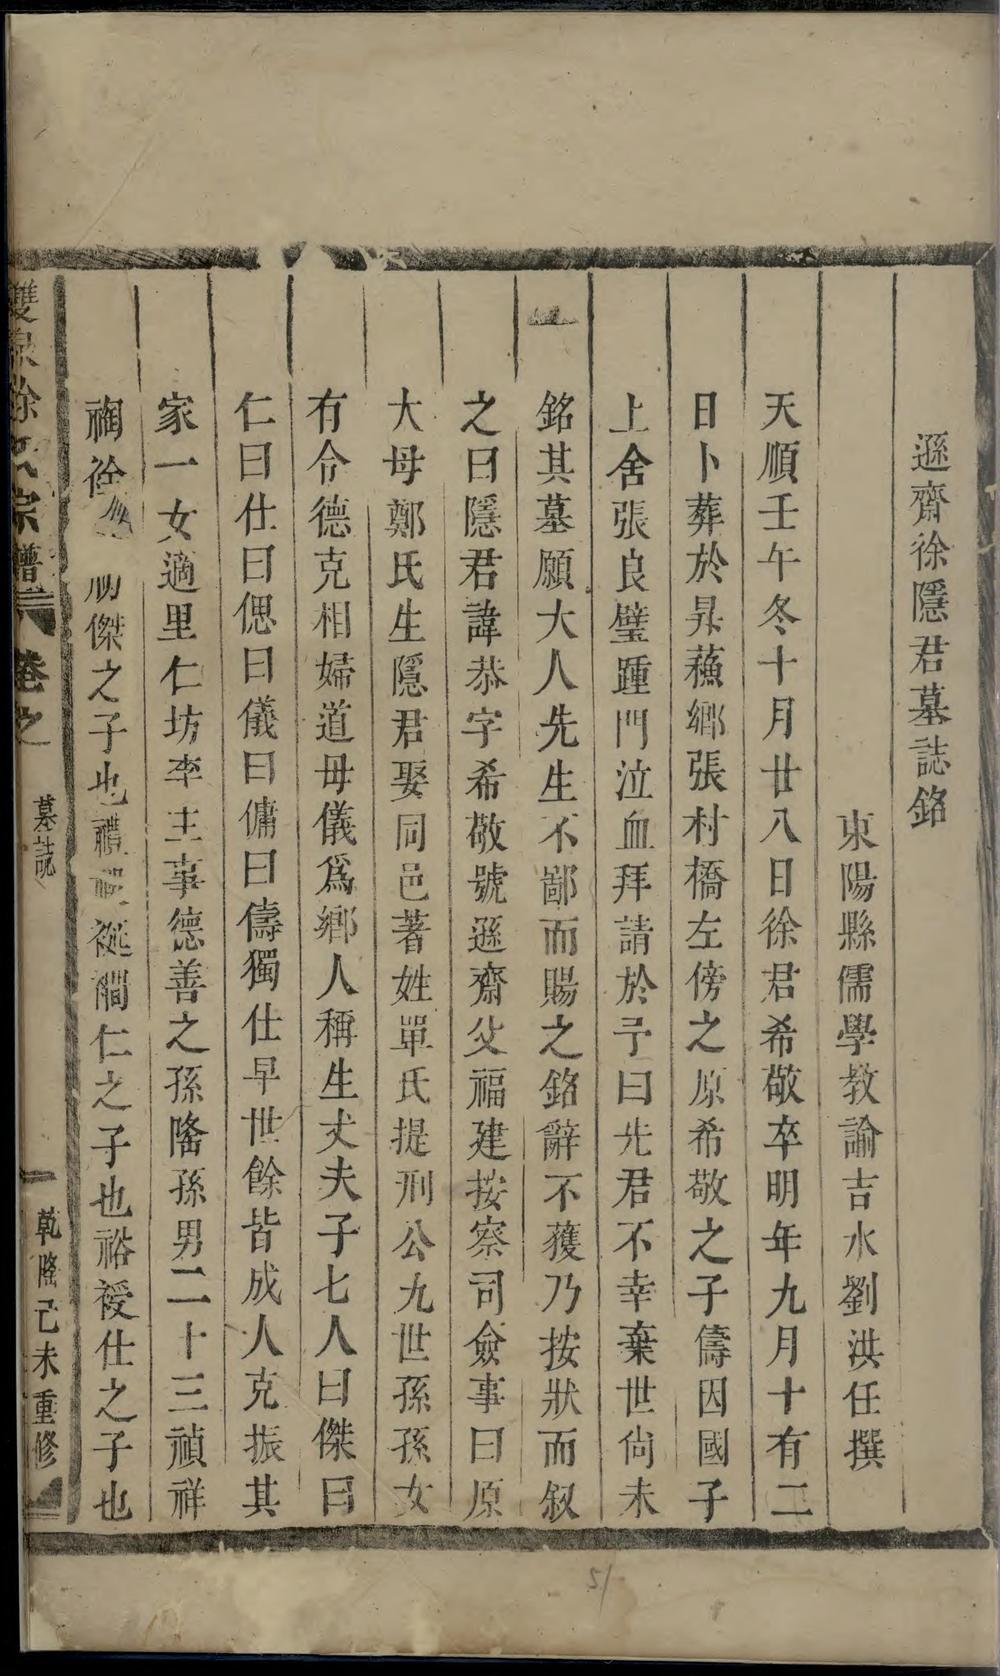 遜齋徐隱君墓誌銘
東陽縣儒學教諭吉水劉洪任撰
天順壬午冬十月廿八日徐君希敬卒明年九月十有二
日卜葬於昇蘓鄉張村橋左傍之原希敬之子儔因國子
上舍張良璧踵門泣血拜請於予曰先君不幸棄世尙未
銘其墓願大人先生不鄙而賜之銘辭不獲乃按狀而叙
之曰隱君諱恭字希敬號遜齋父福建按察司僉事曰原
大母鄭氏生隱君娶同邑著姓單氏提刑公九世孫孫女
有令德克相婦道母儀爲鄉人稱生丈夫子七人曰傑曰
仁曰仕曰偲曰儀曰傭曰儔獨仕早世餘皆成人克振其
家一女適里仁坊李主事德善之孫隆孫男二十三禎祥
祹傑之子也禮裞仁之子也裕𥙿仕之子也
雙泉徐氏宗譜 卷之 墓誌 一 乾隆己未重修
51